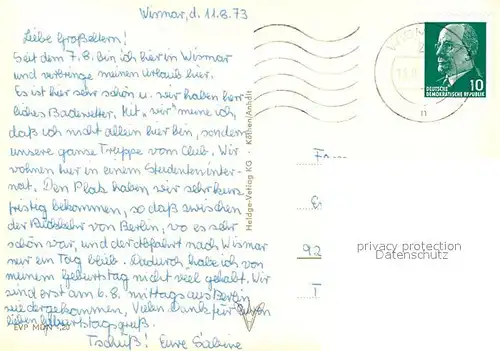 Wismar, d. 11.8.73
Liebe Großeltern!
Seit dem 7.8. bin ich hier in Wismar
und verbringe meinen Urlaub hier.
Es ist hier sehr schön u. wir haben herr
liches Badewetter. Mit "wir" meine ich,
daß ich nicht allein hier bin, sondern
unsere ganze Truppe vom Club. Wir
wohnen hier in einem Studenteninter-
nat. Den Platz haben wir sehr kurz
fristig bekommen, so daß zwischen
der Rückkehr von Berlin, wo es sehr
schön war, und der Abfahrt nach Wismar
nur ein Tag blieb. Dadurch habe ich von
meinem Geburtstag nicht viel gehabt. Wir
sind erst am 6.8. mittags aus Berlin
wiedergekommen. Vielen Dank für Euren
lieben Geburtstagsgruß.
Tschüß! Eure Sabine
EVP MDN -,20
Heldge-Verlag KG · Köthen/Anhalt
DEUTSCHE
DEMOKRATISCHE REPUBLIK
10
92
privacy protection
Datenschutz